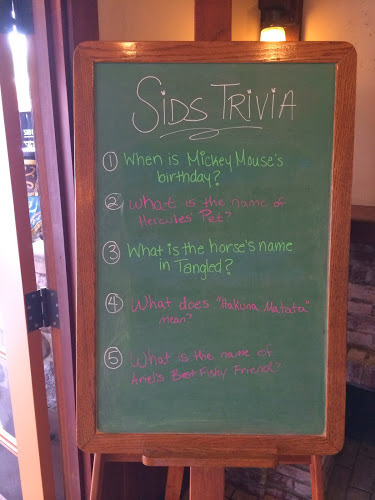 SIDS TRIVIA
① When is Mickey Mouse's
birthday?
② What is the name of
Hercules' Pet?
③ What is the horse's name
in Tangled?
④ What does "Hakuna Matata"
mean?
⑤ What is the name of
Ariel's Best Fishy Friend?